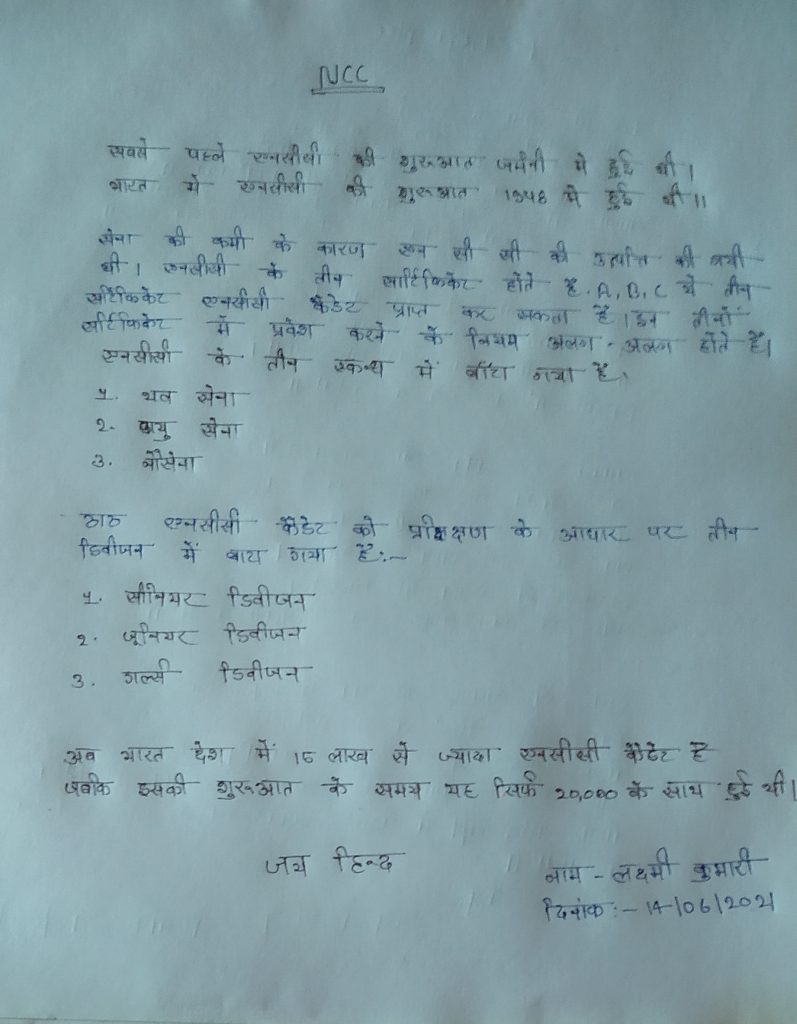 NCC
सबसे पहले एनसीसी की शुरुआत जर्मनी मे हुई थी।
भारत में एनसीसी की शुरुआत 1948 मे हुई थी।।
सेना की कमी के कारण एन सी सी की उत्पत्ति की गयी
थी। एनसीसी के तीन सार्टिफिकेट होते है. A, B, C ये तीन
सर्टिफिकेट एनसीसी कैडेट प्राप्त कर सकता है। इन तीनों
सर्टिफिकेट में प्रवेश करने के नियम अलग - अलग होते हैं।
एनसीसी के तीन स्कन्ध में बाँटा गया है.
1. थल सेना
2. वायु सेना
3. नौसेना
एनसीसी कैडेट को प्रशिक्षण के आधार पर तीन
डिवीजन में बाटा गया है:-
1. सीनियर डिवीजन
2. जूनियर डिवीजन
3. गर्ल्स डिवीजन
अब भारत देश में 15 लाख से ज्यादा एनसीसी कैडेट है
जबकि इसकी शुरुआत के समय यह सिर्फ 20,000 के साथ हुई थी।
जय हिन्द
नाम - लक्ष्मी कुमारी
दिनांक :- 14/06/2021